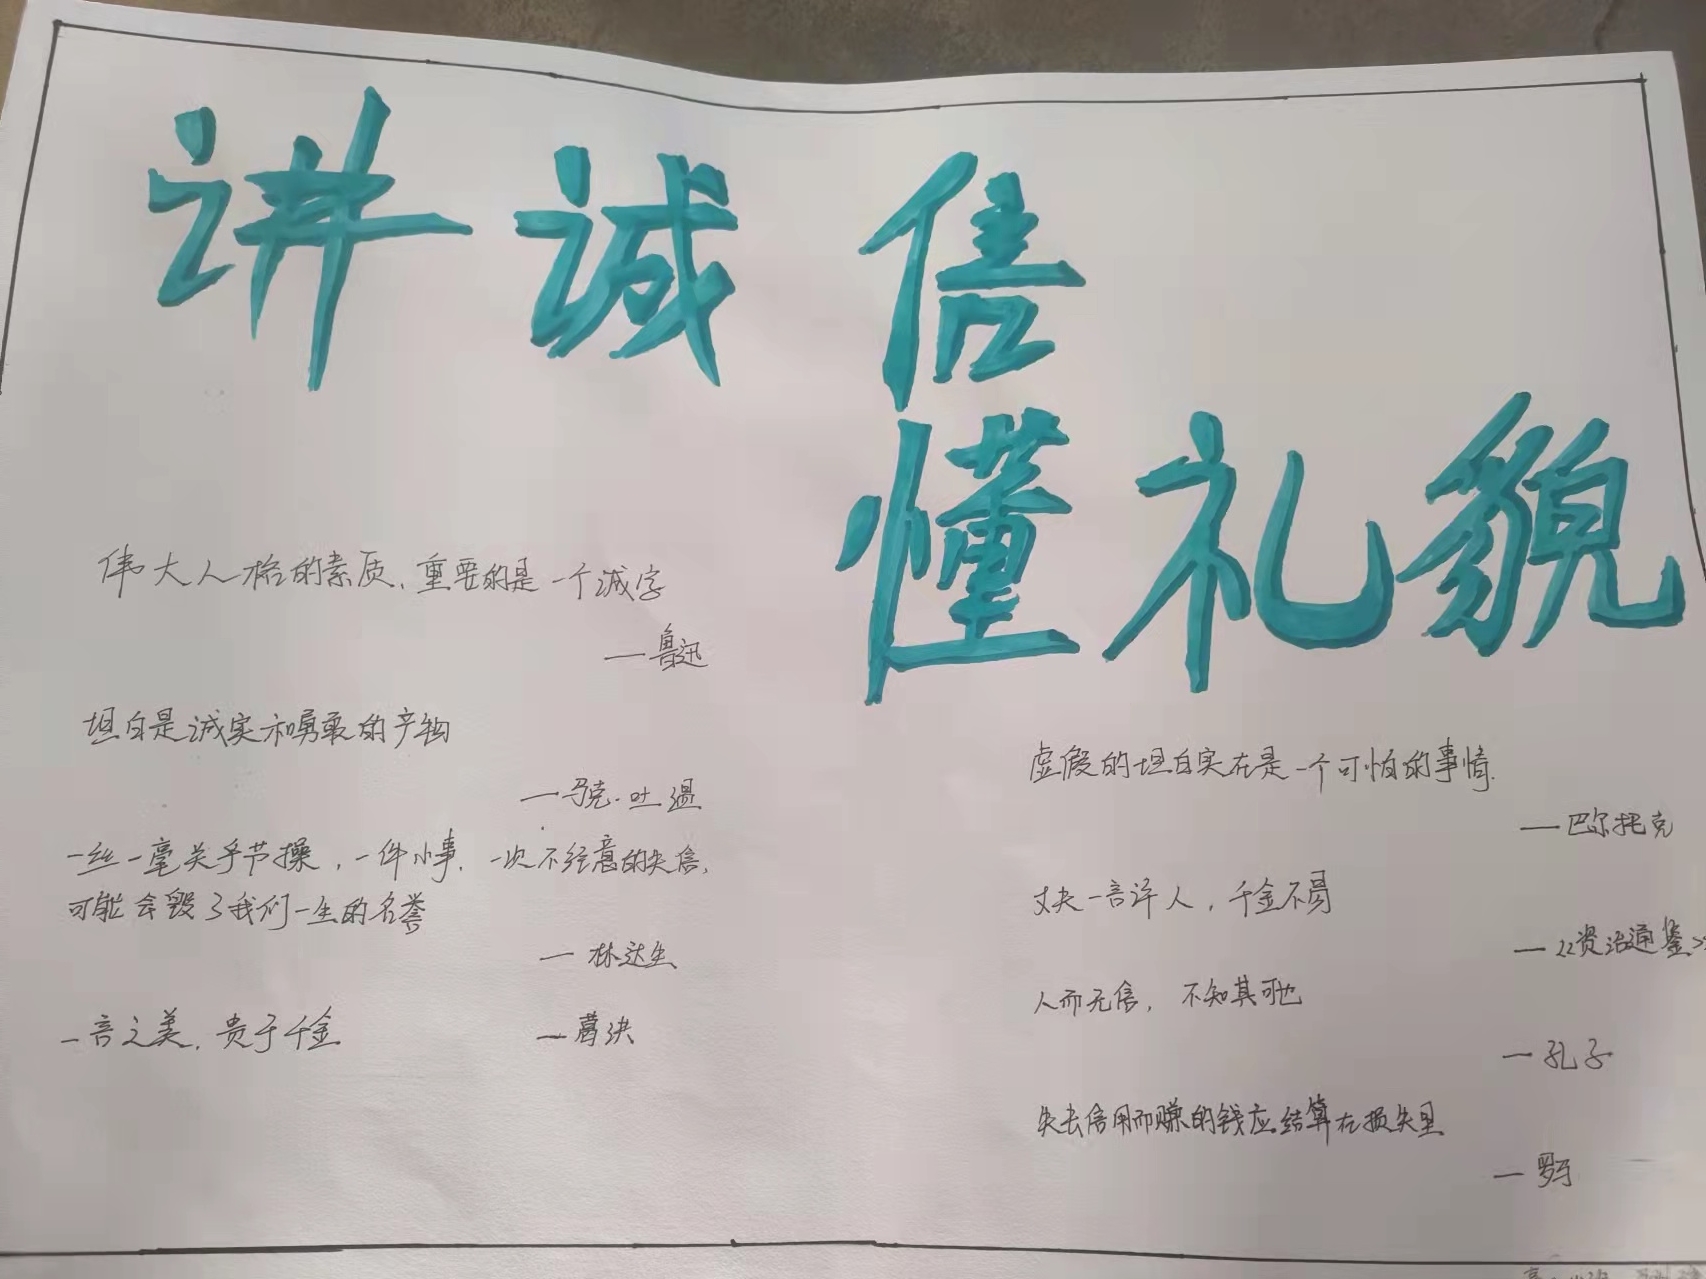 讲诚信
懂礼貌
伟大人格的素质,重要的是一个诚字
—鲁迅
坦白是诚实和勇敢的产物
—马克·吐温
一丝一毫关乎节操,一件小事,一次不经意的失信,
可能会毁了我们一生的名誉
—林达生
一言之美,贵于千金
—葛洪
虚假的坦白实在是一个可怕的事情.
—巴尔托克
丈夫一言许人,千金不易
—《资治通鉴》
人而无信,不知其可也
—孔子
失去信用而赚的钱应结算在损失里
—罗